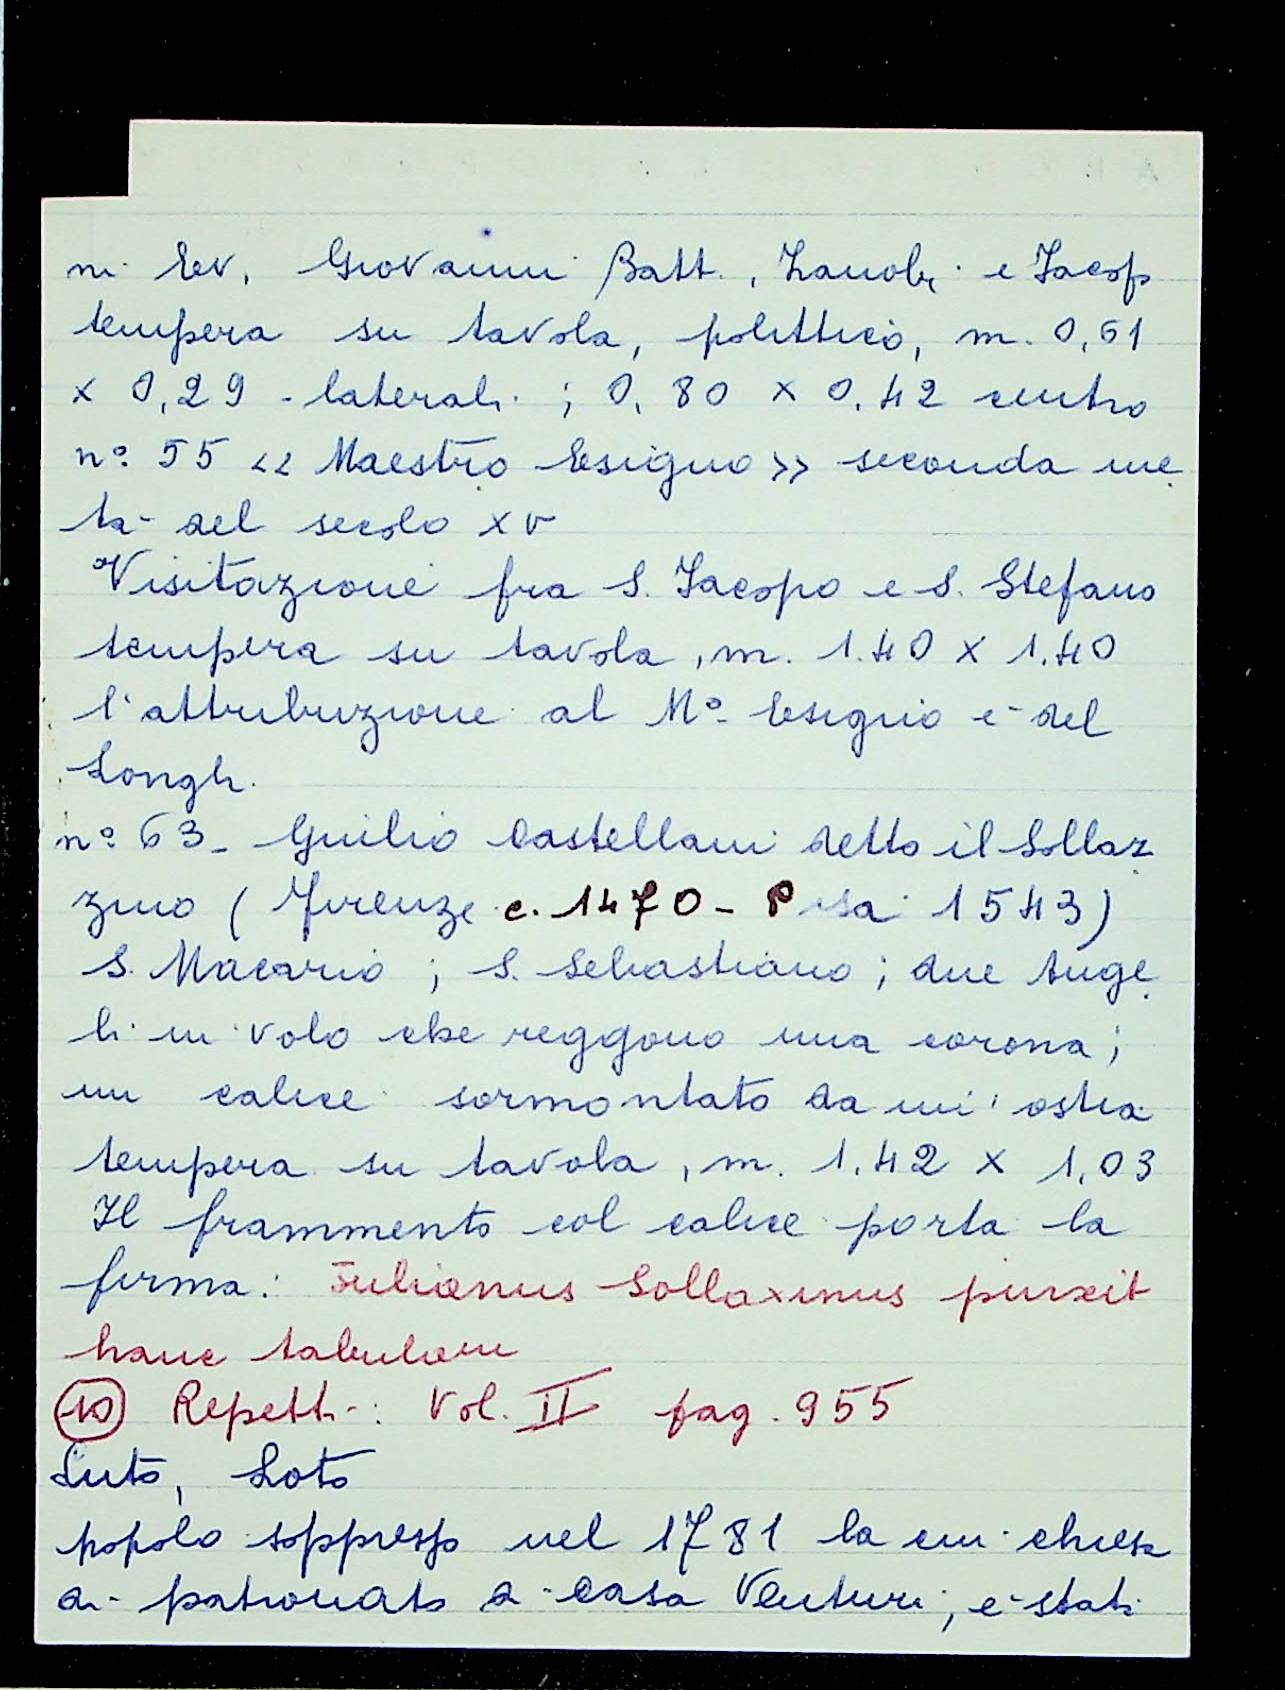 ni Ev, Giovanni Batt., Zanobi e Jacop
tempera su tavola, polittico, m. 0,61
x 0,29 - laterali ; 0,80 x 0,42 centro
n° 55 << Maestro Esiguo >> seconda me
tà del secolo XV
Visitazione fra S. Jacopo e S. Stefano
tempera su tavola, m. 1.40 x 1.40
l'attribuzione al M° Esiguo è del
Longhi
n° 63 - Giulio Castellani detto il Sollaz
zino (Firenze c. 1470 - Pisa 1543)
S. Macario ; S. Sebastiano ; due Ange
li in volo che reggono una corona ;
un calice sormontato da un'ostia
tempera su tavola, m. 1,42 x 1,03
Il frammento col calice porta la
firma: Julianus Sollaxinus pinxit
hanc tabulam
10 Repetti: Vol. II pag. 955
Luto, Loto
popolo soppresso nel 1781 la cui chiesa
di patronato di casa Venturi, è stati